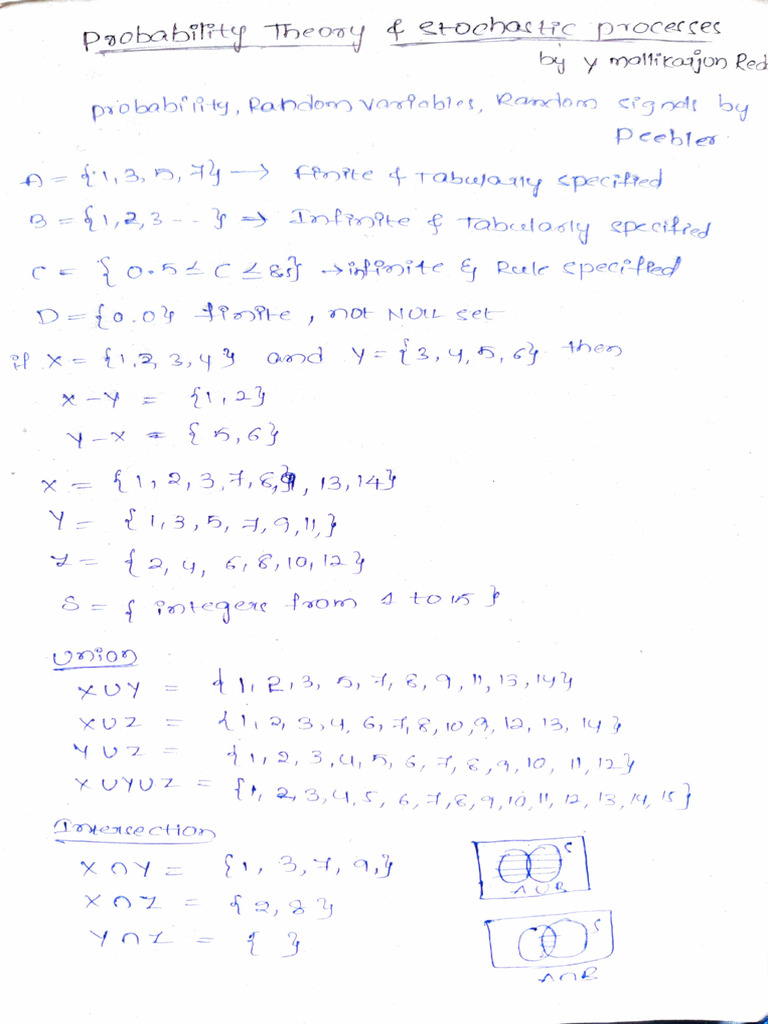 Probability Theory & stochastic processes
by Y Mallikarjun Red
probability, Random variables, Random signals by
Peebler
A = {1, 3, 5, 7} → finite & Tabularly specified
B = {1, 2, 3 - - } ⇒ Infinite & Tabularly specified
C = { 0.5 ≤ C ≤ 8.5} → infinite & Rule specified
D = {0.0} finite, not NULL set
if X = {1, 2, 3, 4} and Y = {3, 4, 5, 6} then
X - Y = {1, 2}
Y - X = { 5, 6}
X = {1, 2, 3, 7, 8, 9, 13, 14}
Y = {1, 3, 5, 7, 9, 11,}
Z = {2, 4, 6, 8, 10, 12}
S = { integers from 1 to 15 }
Union
X U Y = {1, 2, 3, 5, 7, 8, 9, 11, 13, 14}
X U Z = {1, 2, 3, 4, 6, 7, 8, 10, 9, 12, 13, 14}
Y U Z = {1, 2, 3, 4, 5, 6, 7, 8, 9, 10, 11, 12}
X U Y U Z = {1, 2, 3, 4, 5, 6, 7, 8, 9, 10, 11, 12, 13, 14, 15}
Intersection
X ∩ Y = {1, 3, 7, 9,}
S
A U B
X ∩ Z = {2, 8}
Y ∩ Z = { }
S
A ∩ B